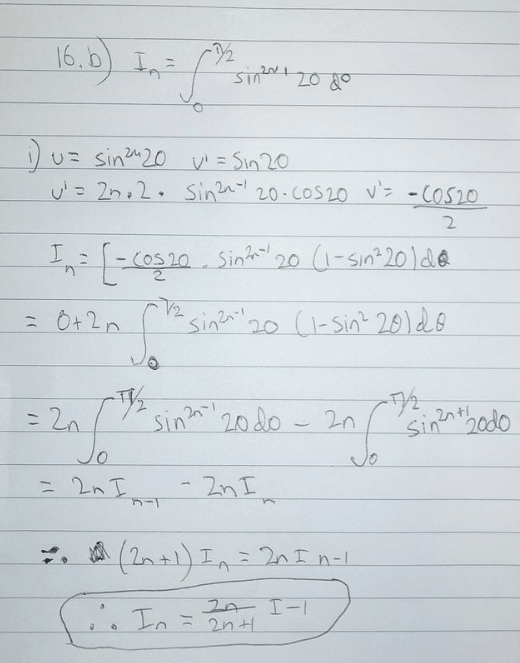 16.b) Iₙ = ∫₀^(π/2) sin²ⁿ⁺¹ 2θ dθ
i) u = sin²ⁿ2θ v' = sin2θ
u' = 2n.2. sin²ⁿ⁻¹ 2θ.cos2θ v' = -cos2θ/2
Iₙ = [-cos2θ/2 . sin²ⁿ⁻¹ 2θ (1-sin²2θ)dθ
= 0+2n ∫₀^(π/2) sin²ⁿ⁻¹ 2θ (1-sin² 2θ)dθ
= 2n ∫₀^(π/2) sin²ⁿ⁻¹ 2θdθ - 2n ∫₀^(π/2) sin²ⁿ⁺¹ 2θdθ
= 2n Iₙ₋₁ - 2n Iₙ
∴ (2n+1) Iₙ = 2n I n-1
∴ Iₙ = 2n/2n+1 I-1